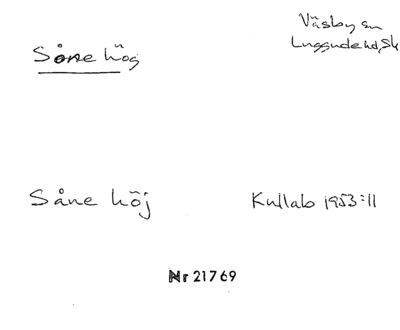 Såne hög
Väsby sn
Luggude hd, Sk
Såne höj
Kullab 1953:11
Nr 21769